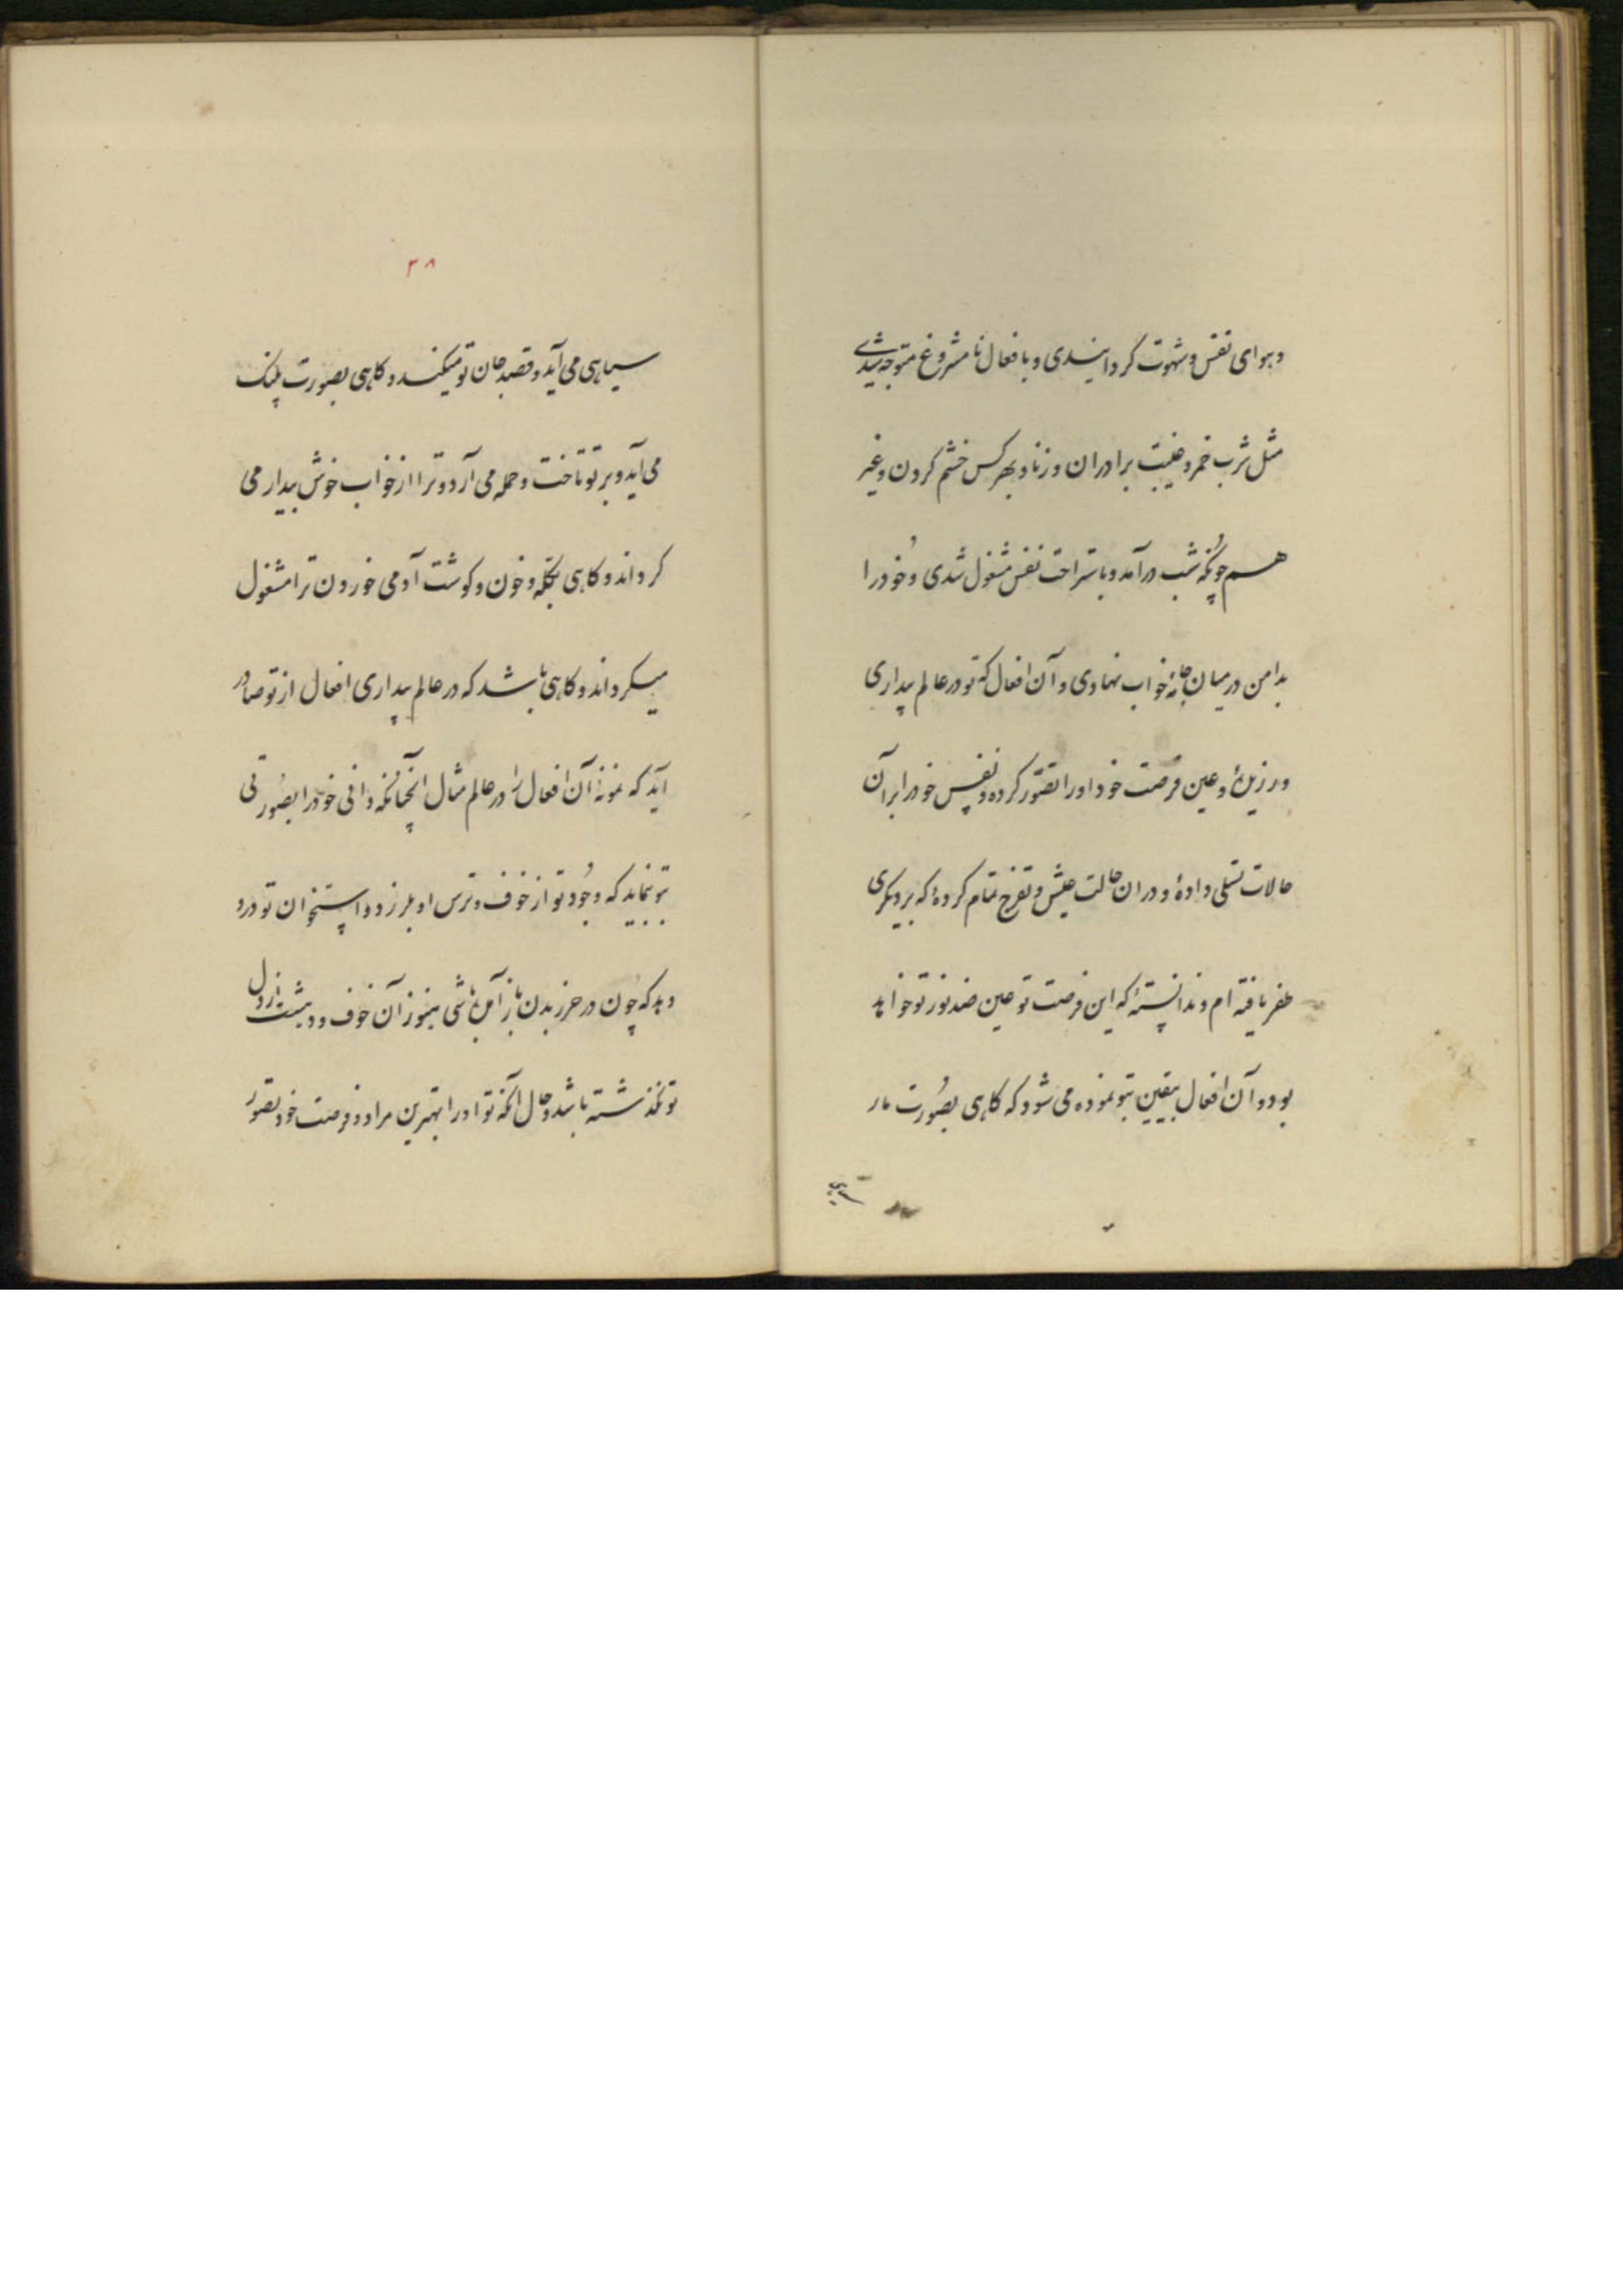 وبهوای نفس وشهوت کردانیدی و بافعال نا مشروع متوجه شدی
مثل شرب خمر و غیبت برادران و زنا و بهر کس خشم کردن و غیر
هم چونکه شب درآمد و باستراحت نفس مشغول شدی و خود را
بدامن در میان جامهٔ خواب نهادی و آن افعال که تو در عالم بیداری
ورزیدهٔ و عین فرصت خود اورا تصور کرده و نفس خود را بر آن
حالات تسلی دادهٔ و در ان حالت عیش و تفرج تمام کردهٔ که بر دیکری
ظفر یافته ام و ندانستهٔ که این فرصت تو عین ضد نور تو خواهد
بود و آن افعال بیقین بتو نموده می شود که کاهی بصورت مار
سیاهی
۳۸
سیاهی می آید و قصد جان تو میکند و کاهی بصورت پلنک
می آید و بر تو تاخت و حمله می آرد و ترا از خواب خوش بیدار می
کرداند و کاهی بکله و خون و کوشت آدمی خوردن ترا مشغول
میکرداند و کاهی باشد که در عالم بیداری افعال از تو صادر
آید که نمونهٔ آن افعال را در عالم مثال آنچنانکه دانی خود را بصورتی
بتو نماید که وجود تو از خوف و ترس او بلرزد و استخوان تو درد
دهد که چون در حرز بدن باز آمن باشی هنوز آن خوف و دهشت از دل
تو نکذشته باشد و حال آنکه تو اورا بهترین مراد و فرصت خود تصور